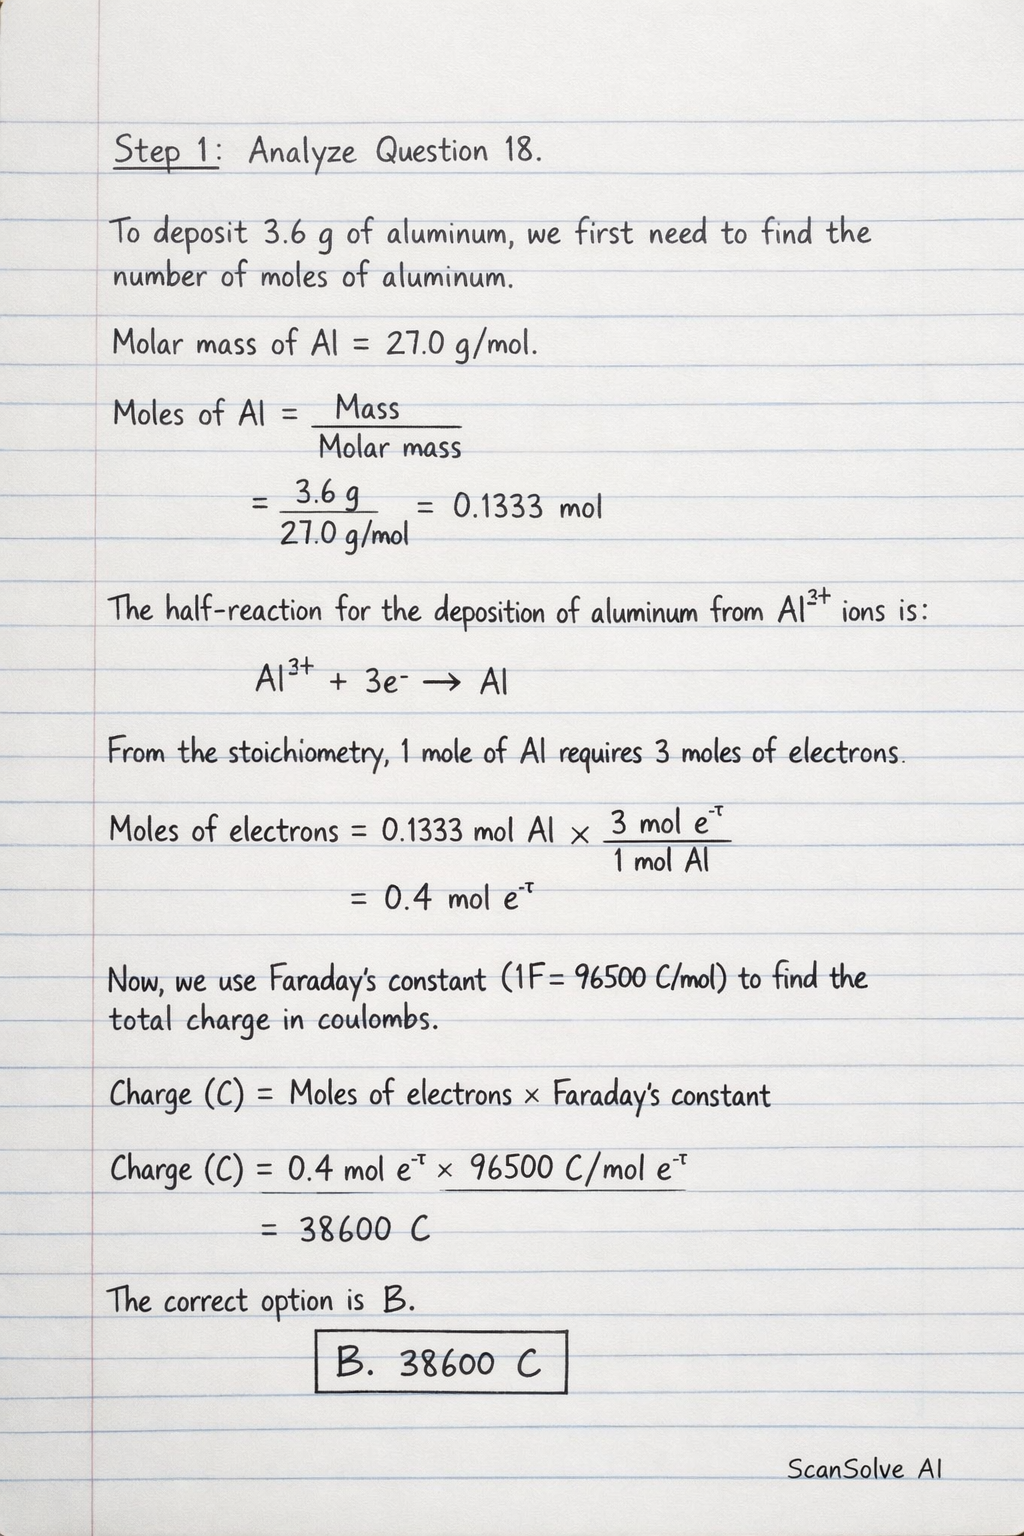 Step 1: Analyze Question 18.
To deposit 3.6 g of aluminum, we first need to find the
number of moles of aluminum.
Molar mass of Al = 27.0 g/mol.
Moles of Al = Mass / Molar mass
= 3.6 g / 27.0 g/mol = 0.1333 mol
The half-reaction for the deposition of aluminum from Al³⁺ ions is:
Al³⁺ + 3e⁻ → Al
From the stoichiometry, 1 mole of Al requires 3 moles of electrons.
Moles of electrons = 0.1333 mol Al × 3 mol e⁻ᵀ / 1 mol Al
= 0.4 mol e⁻ᵀ
Now, we use Faraday's constant (1F = 96500 C/mol) to find the
total charge in coulombs.
Charge (C) = Moles of electrons × Faraday's constant
Charge (C) = 0.4 mol e⁻ᵀ × 96500 C/mol e⁻ᵀ
= 38600 C
The correct option is B.
B. 38600 C
ScanSolve AI